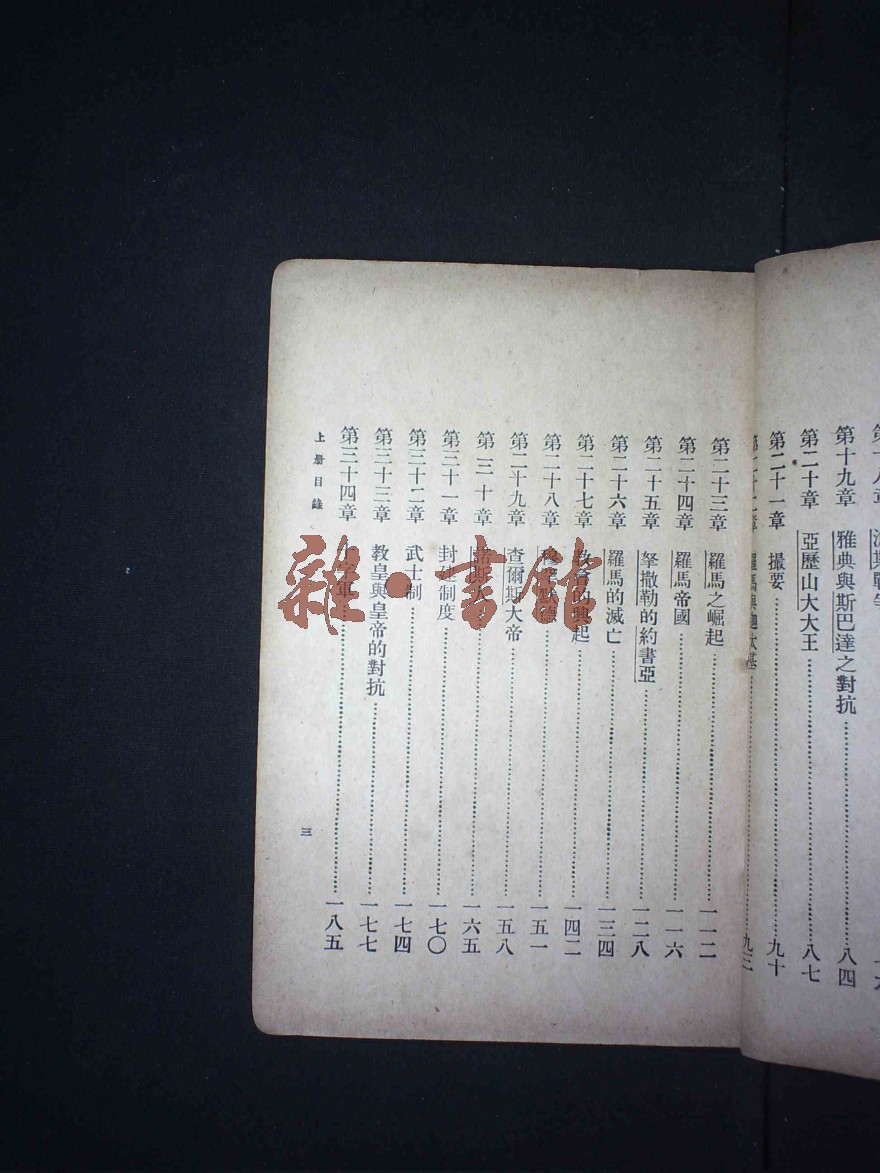 第十九章　雅典與斯巴達之對抗……八四
第二十章　亞歷山大大王……八七
第二十一章　撮要……九十
第二十二章　羅馬與迦太基……九三
第二十三章　羅馬之崛起……一一二
第二十四章　羅馬帝國……一一六
第二十五章　拏撒勒的約書亞……一二八
第二十六章　羅馬的滅亡……一三四
第二十七章　教會的興起……一四二
第二十八章　穆罕默德……一五一
第二十九章　查爾斯大帝……一五八
第三十章　諾斯人……一六五
第三十一章　封建制度……一七〇
第三十二章　武士制……一七四
第三十三章　教皇與皇帝的對抗……一七七
第三十四章　十字軍……一八五
上册目錄
三
雜·書館